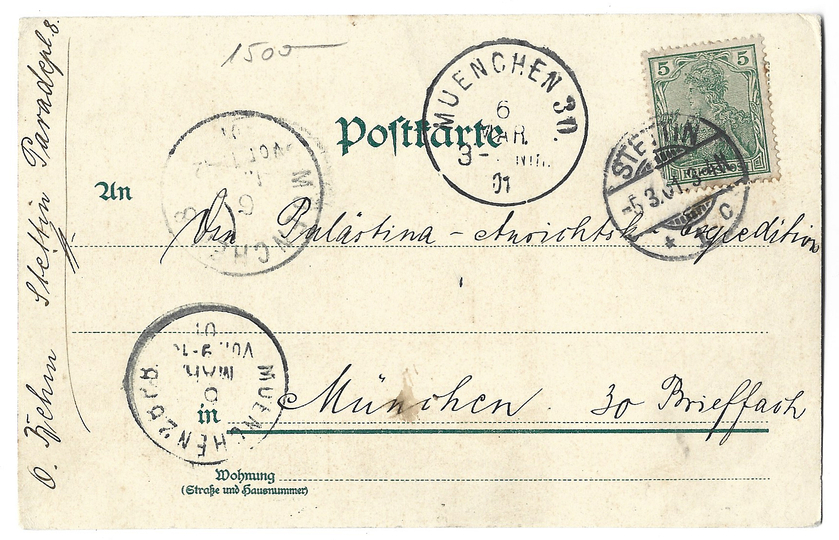 1500
Postkarte
5 5
STETTIN
-5.3.01. 3-4N
* * C
MUENCHEN 30.
6
MAR.
3- NM.
01
MUENCHEN 8
6
VOR.
01
An
Die Palästina-Ansichtsk-Expedition
MUENCHEN 2 B.P.8.
6
MAR.
VOR. 9-10
01
in München. 30 Brieffach
Wohnung
(Straße und Hausnummer)
O. Zehm Stettin Paradepl. 8.